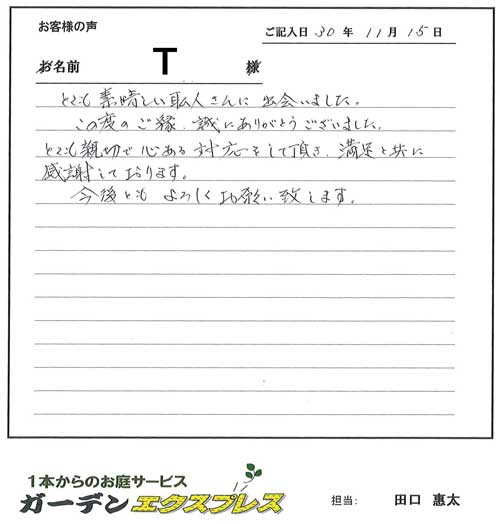 お客様の声
ご記入日 30 年 11 月 15 日
お名前 T 様
とても素晴しい職人さんに出会いました。
この度のご縁、誠にありがとうございました。
とても親切で心ある対応をして頂き、満足と共に
感謝しております。
今後ともよろしくお願い致します。
1本からのお庭サービス
ガーデンエクスプレス
担当: 田口 惠太